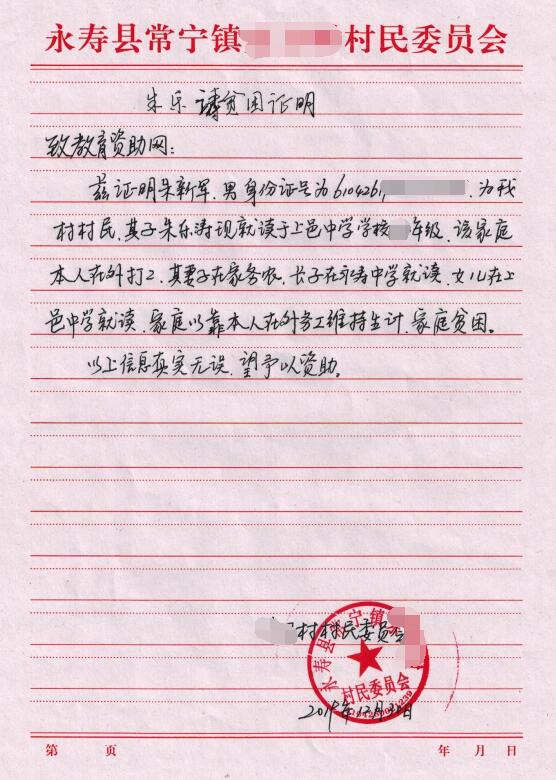 永寿县常宁镇 村民委员会
朱乐涛贫困证明
致教育资助网:
兹证明朱新军,男身份证号为610426 ,为我
村村民,其子朱乐涛现就读于上邑中学学校 年级,该家庭
本人在外打工,其妻子在家务农,长子在永寿中学就读,女儿在上
邑中学就读,家庭以靠本人在外务工维持生计,家庭贫困。
以上信息真实无误,望予以资助。
村村民委员会
永寿县常宁镇
村民委员会
2019年12月20日
第 页 年 月 日